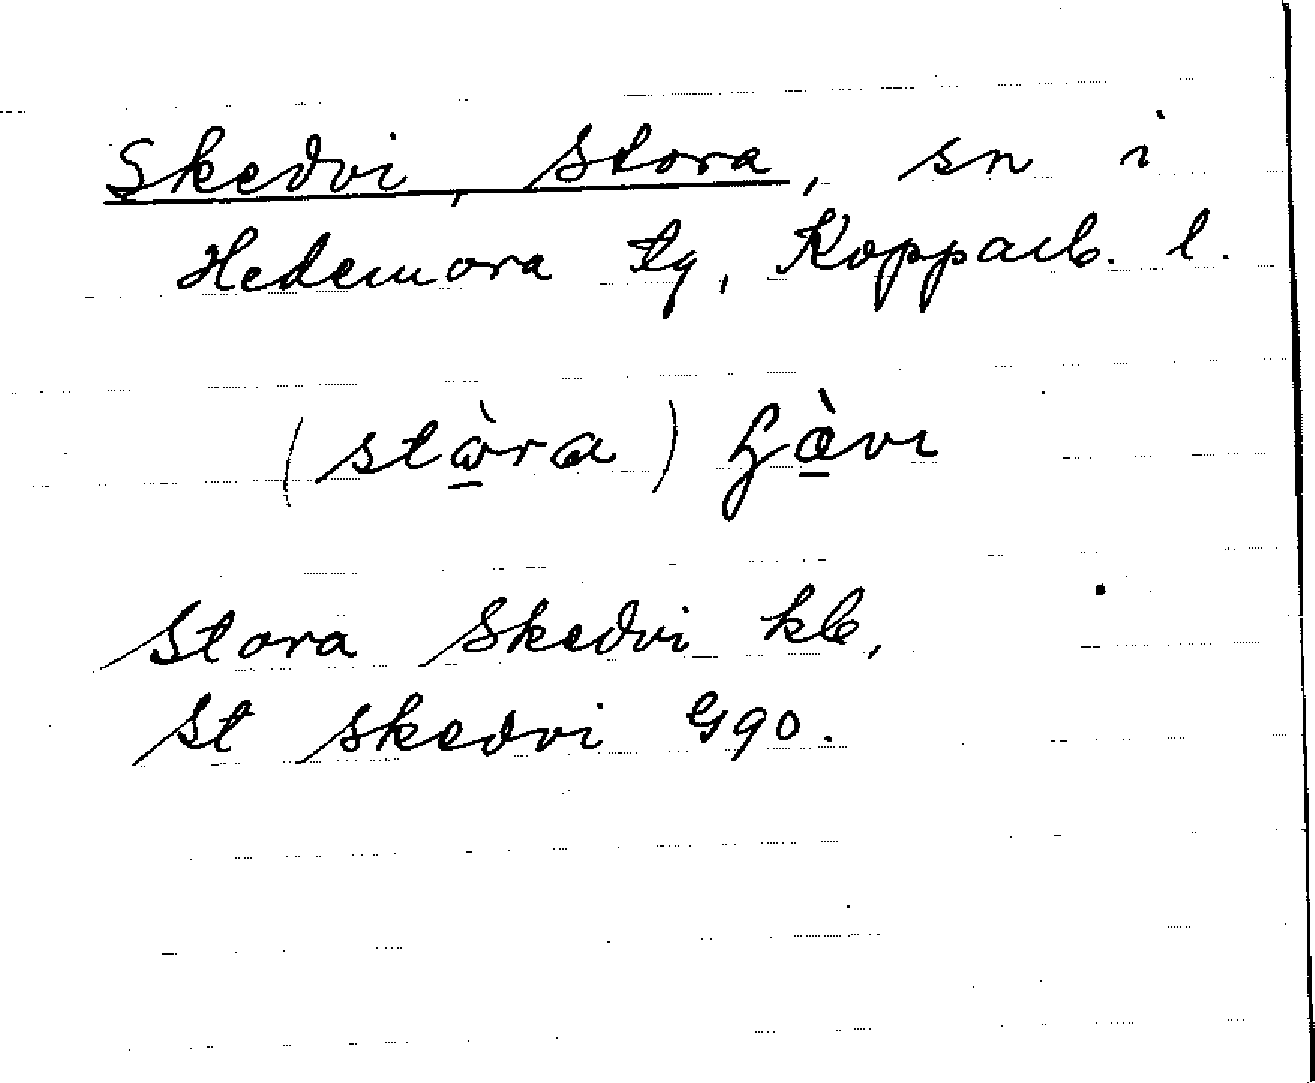 Skedvi, Stora, sn i
Hedemora tg, Kopparb. l.
(stɷ̠̀ra)
Stora Skedvi kb,
St Skedvi G90.